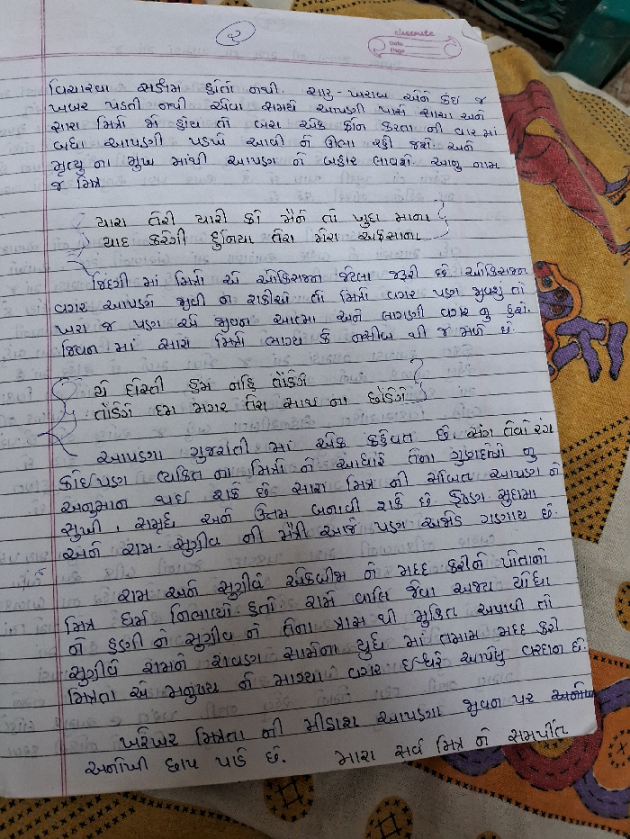 ૨
classmate
Date
Page
વિચારવા સક્ષમ હોતો નથી. સારુ-ખરાબ એને કંઇ જ
ખબર પડતી નથી એવા સમયે આપણી પાસે સારા અને
સારા મિત્રો મા હોય તો બસ એક ફોન કરતા ની વાર માં
બધા આપણી પડખે આવી ને ઊભા રહી જશે અને
મૃત્યુ ના મુખ માંથી આપણ ને બહાર લાવશે આનુ નામ
જ મિત્ર
યારા તેરી યારી કો મૈને તો ખુદા માના
યાદ કરેગી દુનિયા તેરા મેરા અફસાના
જિંદગી માં મિત્રો એ ઓક્સિજન જેટલા જરૂરી છે ઓક્સિજન
વગર આપણે જીવી ન શકીએ તો મિત્રો વગર પણ જીવશુ તો
ખરા જ પણ એ જીવન આત્મા અને લાગણી વગર નુ હશે.
જિવન માં સારા મિત્રો ભાગ્ય કે નસીબ થી જ મળે છે.
યે દોસ્તી હમ નહિ તોડેગે
તોડેગે દમ મગર તેરા સાથ ના છોડેગે
આપણા ગુજરાતી માં એક કહેવત છે. સંગ તેવો રંગ
કોઇપણ વ્યકિત ના મિત્રો ને આધારે તેના ગુણદોષો નુ
અનુમાન થઇ શકે છે સારા મિત્ર ની સોબત આપણ ને
સુખી, સમૃદ્ધ અને ઉત્તમ બનાવી શકે છે. કૃષ્ણ સુદામા
અને રામ-સુગ્રીવ ની મૈત્રી આજે પણ અજોડ ગણાય છે.
રામ અને સુગ્રીવે એકબીજા ને મદદ કરીને પોતાનો
મિત્ર ધર્મ નિભાવ્યો હતો રામે વાલિ જેવા અજય યોધ્ધા
ને હણી ને સુગ્રીવ ને તેના ત્રાસ થી મુકિત અપાવી તો
સુગ્રીવે રામને રાવણ સામેના યુધ્ધ માં તમામ મદદ કરી
મિત્રતા એ મનુષ્ય ને માગ્યા વગર ઇશ્વરે આપેલુ વરદાન છે.
ખરેખર મિત્રતા ની મીઠાશ આપણા જીવન પર
અનોખી છાપ પાડે છે. મારા સર્વ મિત્ર ને સમર્પિત